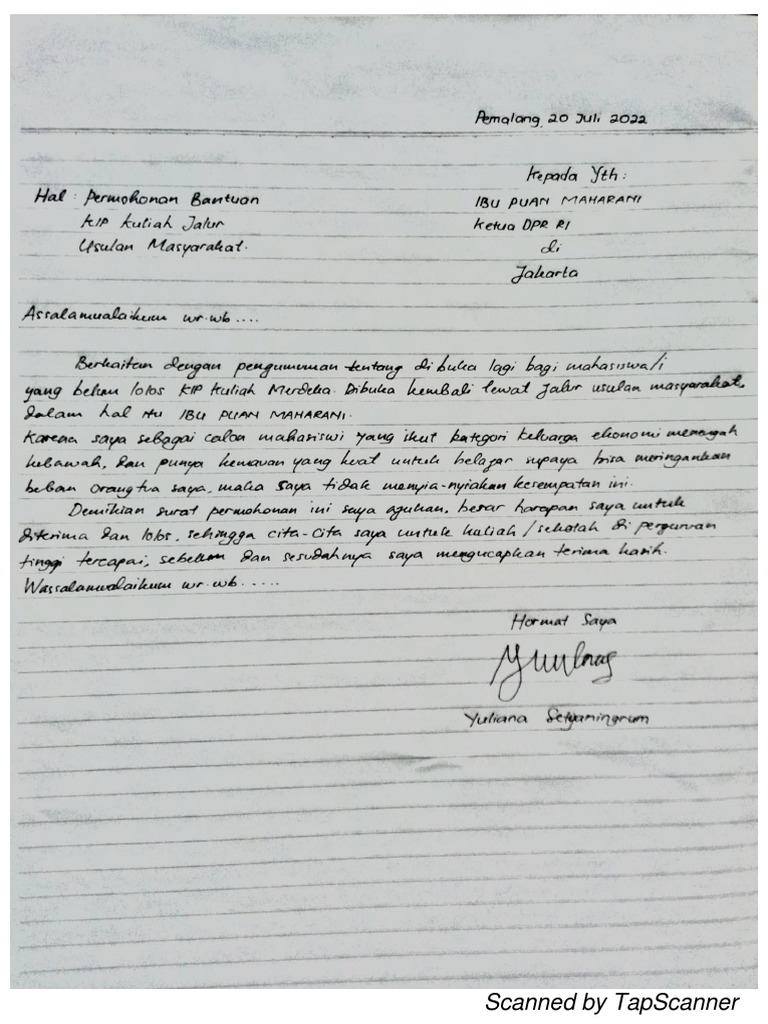 Pemalang, 20 Juli 2022
Kepada Yth :
Hal : Permohonan Bantuan
IBU PUAN MAHARANI
KIP Kuliah Jalur
Ketua DPR RI
Usulan Masyarakat.
di
Jakarta
Assalamualaikum wr.wb....
Berkaitan dengan pengumuman tentang di buka lagi bagi mahasiswa/i
yang belum lolos KIP Kuliah Merdeka. Dibuka kembali lewat Jalur usulan masyarakat,
dalam hal itu IBU PUAN MAHARANI.
Karena saya sebagai calon mahasiswi yang ikut kategori keluarga ekonomi menengah
kebawah, dan punya kemauan yang kuat untuk belajar supaya bisa meringankan
beban orangtua saya, maka saya tidak menyia-nyiakan kesempatan ini.
Demikian surat permohonan ini saya ajukan, besar harapan saya untuk
diterima dan lolos, sehingga cita-cita saya untuk kuliah / sekolah di perguruan
tinggi tercapai, sebelum dan sesudahnya saya mengucapkan terima kasih.
Wassalamualaikum wr.wb.....
Hormat Saya
Yuliana Setyaningrum
Scanned by TapScanner